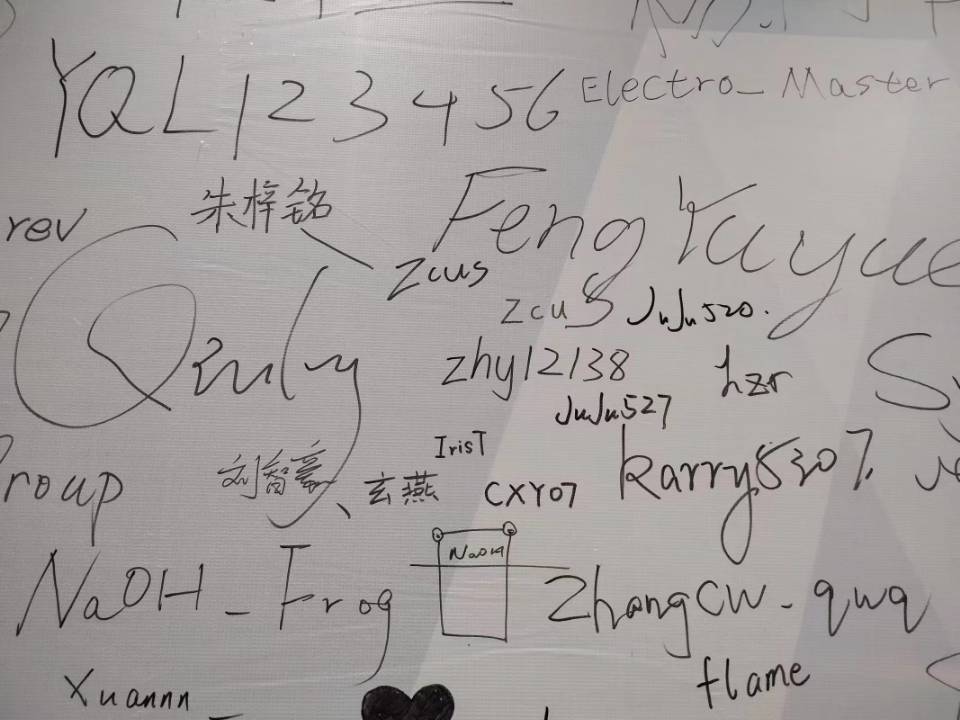 YQL123456
Electro_Master
rev
朱梓铭
FengYuyue
zcus
zcus
JuJu520.
Qruly
zhy12138
hzr
JuJu527
IrisT
karry5307
roup
刘智豪、玄燕
CXY07
NaOH
NaOH_Frog
ZhangCW_qwq
flame
Xuannn